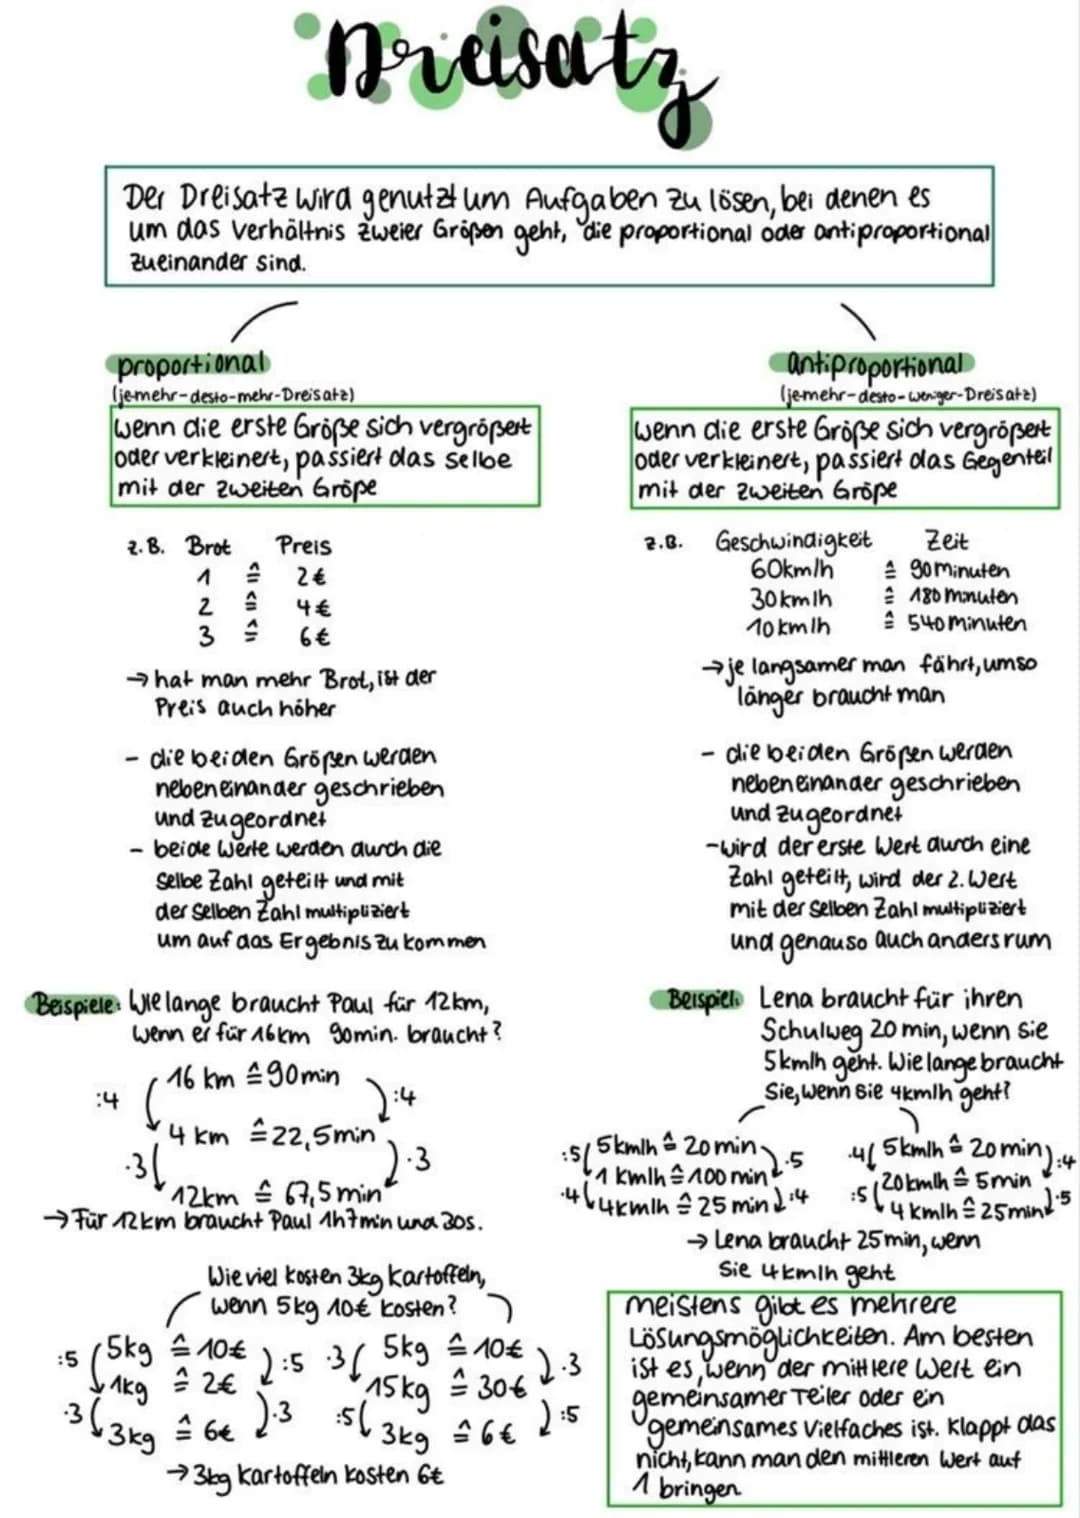 Dreisatz
Der Dreisatz wird genutzt um Aufgaben zu lösen, bei denen es
um das Verhältnis zweier Größen geht, die proportional oder antiproportional
zueinander sind.
proportional
(je-mehr-desto-mehr-Dreisatz)
wenn die erste Größe sich vergrößert
oder verkleinert, passiert das selbe
mit der zweiten Größe
z.B. Brot Preis
1 ≙ 2€
2 ≙ 4€
3 ≙ 6€
→ hat man mehr Brot, ist der
Preis auch höher
- die beiden Größen werden
nebeneinander geschrieben
und zugeordnet
- beide Werte werden durch die
selbe Zahl geteilt und mit
der selben Zahl multipliziert
um auf das Ergebnis zu kommen
Beispiele: Wie lange braucht Paul für 12km,
wenn er für 16km 90min. braucht?
16 km ≙ 90min
:4 :4
4 km ≙ 22,5min
·3 ·3
12km ≙ 67,5min
→ Für 12km braucht Paul 1h 7min und 30s.
Wie viel kosten 3kg Kartoffeln,
wenn 5kg 10€ kosten?
:5 5kg ≙ 10€ :5
1kg ≙ 2€
·3 3kg ≙ 6€ ·3
·3 5kg ≙ 10€ ·3
15kg ≙ 30€
:5 3kg ≙ 6€ :5
→ 3kg Kartoffeln kosten 6€
antiproportional
(je-mehr-desto-weniger-Dreisatz)
wenn die erste Größe sich vergrößert
oder verkleinert, passiert das Gegenteil
mit der zweiten Größe
z.B. Geschwindigkeit Zeit
60km/h ≙ 90 minuten
30km/h ≙ 180 minuten
10km/h ≙ 540 minuten
→ je langsamer man fährt, umso
länger braucht man
- die beiden Größen werden
nebeneinander geschrieben
und zugeordnet
- wird der erste Wert durch eine
Zahl geteilt, wird der 2. Wert
mit der selben Zahl multipliziert
und genauso auch anders rum
Beispiel: Lena braucht für ihren
Schulweg 20 min, wenn sie
5km/h geht. Wie lange braucht
Sie, wenn sie 4km/h geht?
:5 5km/h ≙ 20min ·5
1 km/h ≙ 100 min
·4 4km/h ≙ 25 min :4
·4 5km/h ≙ 20min :4
20km/h ≙ 5min
:5 4 km/h ≙ 25min ·5
→ Lena braucht 25min, wenn
sie 4km/h geht
meistens gibt es mehrere
Lösungsmöglichkeiten. Am besten
ist es, wenn der mittlere Wert ein
gemeinsamer Teiler oder ein
gemeinsames Vielfaches ist. Klappt das
nicht, kann man den mittleren Wert auf
1 bringen